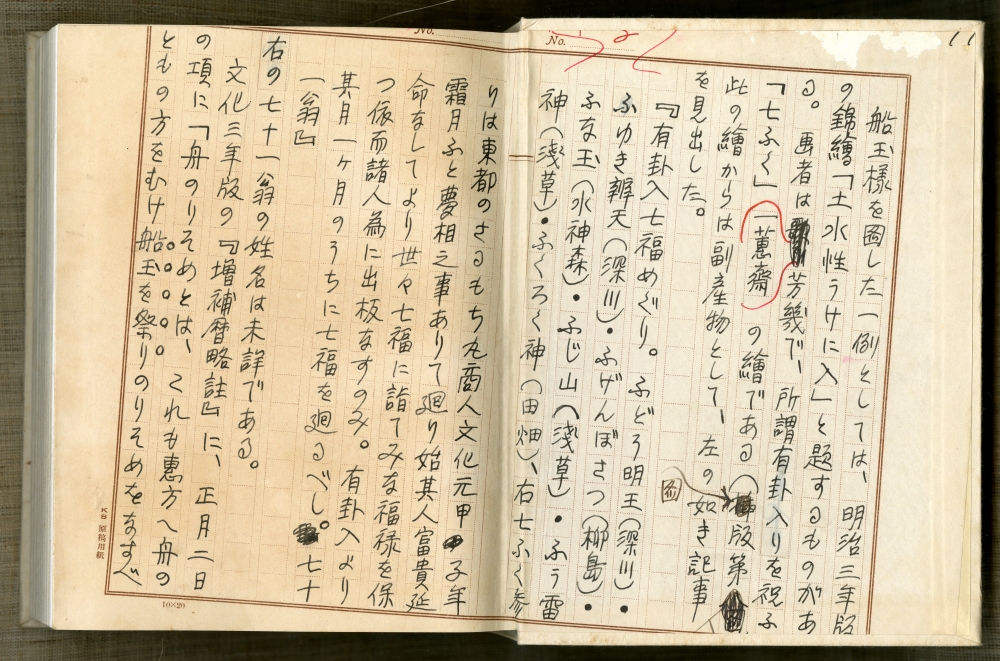 No.
11
船玉様を図した一例としては、明治三年版
の錦繪「土水性うけに入」と題するものがあ
る。画者は芳幾で、所謂有卦入りを祝ふ
「七ふく」「蕙齋」の繪である(版第
図
此の繪からは副産物として、左の如き記事
を見出した。
『有卦入七福めぐり。ふどう明王(深川)・
ふゆき辨天(深川)・ふげんぼさつ(柳島)・
ふな玉(水神森)・ふじ山(浅草)・ふう雷
神(浅草)・ふくろく神(田畑)、右七ふく参
No.
りは東都のさるもち丸商人文化元甲子年
霜月ふと夢相之事ありて廻り始其人富貴延
命なしてより世々七福に詣てみな福禄を保
つ依而諸人為に出板なすのみ。有卦入より
其月一ヶ月のうちに七福を廻るべし。七十
一翁』
右の七十一翁の姓名は未詳である。
文化三年版の『増補暦略註』に、正月二日
の項に「舟のりそめとは、これも恵方へ舟の
ともの方をむけ船玉を祭りのりそめをなすべ
KS 原稿用紙
10×20